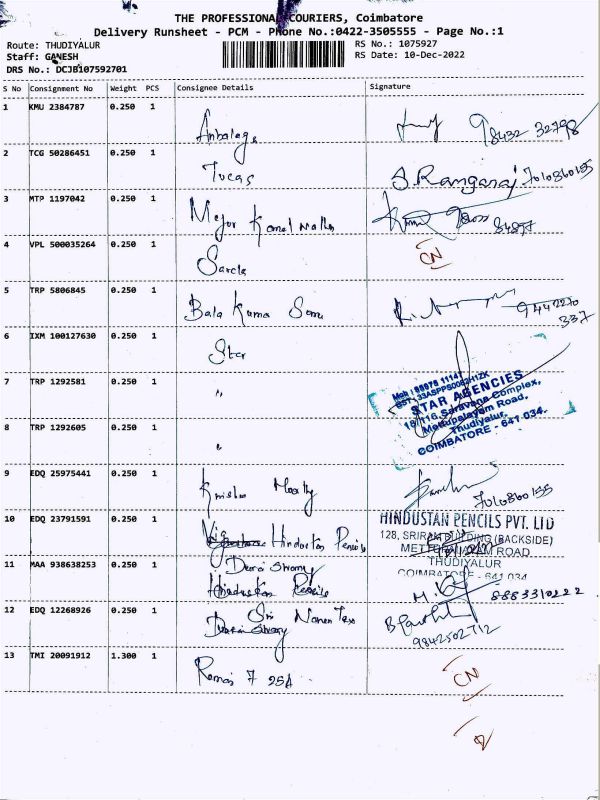 THE PROFESSIONAL COURIERS, Coimbatore
Delivery Runsheet - PCM - Phone No.:0422-3505555 - Page No.:1
Route: THUDIYALUR
RS No.: 1075927
Staff: GANESH
RS Date: 10-Dec-2022
DRS No.: DCJB107592701
S No Consignment No Weight PCS Consignee Details Signature
1 KMU 2384787 0.250 1
98432 32798
2 TCG 50286451 0.250 1 Tucas S. Rangaraj 7010860155
3 MTP 1197042 0.250 1 Major Kamal
84897
4 VPL 500035264 0.250 1 CN
5 TRP 5806845 0.250 1 Bala Kuma
9442270
337
6 IXM 100127630 0.250 1 Star
7 TRP 1292581 0.250 1 "
STAR AGENCIES
18/116, Saravana Complex,
Mettupalayam Road,
Thudiyalur,
COIMBATORE - 641 034.
8 TRP 1292605 0.250 1 "
9 EDQ 25975441 0.250 1 7010860155
10 EDQ 23791591 0.250 1 Hindustan Pencils
HINDUSTAN PENCILS PVT. LTD
128, SRIRAM BUILDING (BACKSIDE)
METTUPALAYAM ROAD
THUDIYALUR
COIMBATORE - 641 034
11 MAA 938638253 0.250 1
8883310222
12 EDQ 12268926 0.250 1 Sri
9842502712
13 TMI 20091912 1.300 1 CN